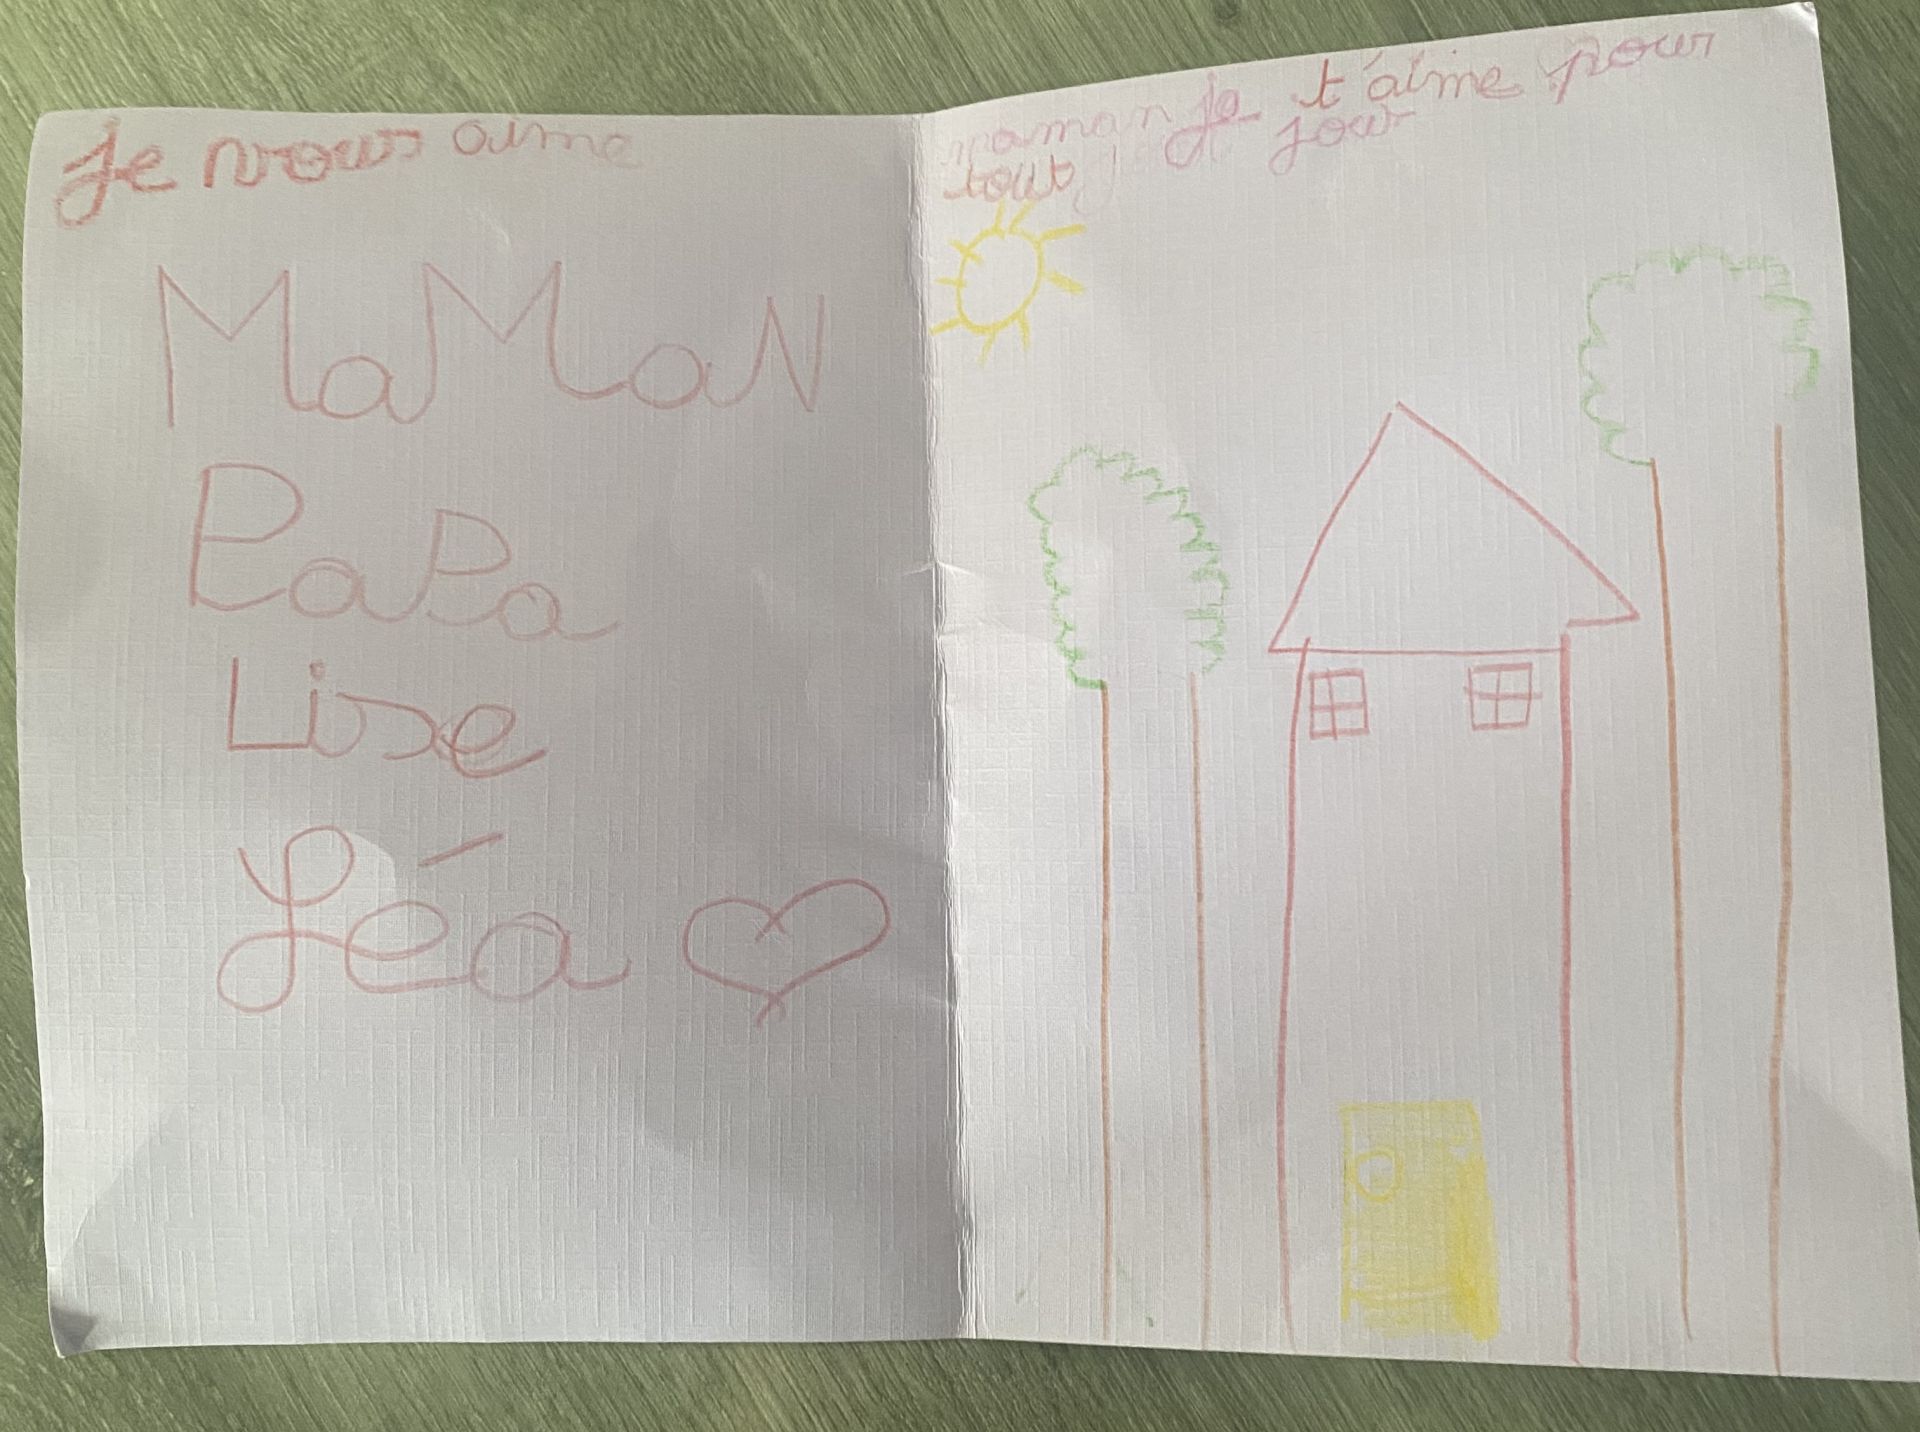 Je vous aime
MaMaN
PaPa
Lise
Léa
maman je t'aime pour
tout jour